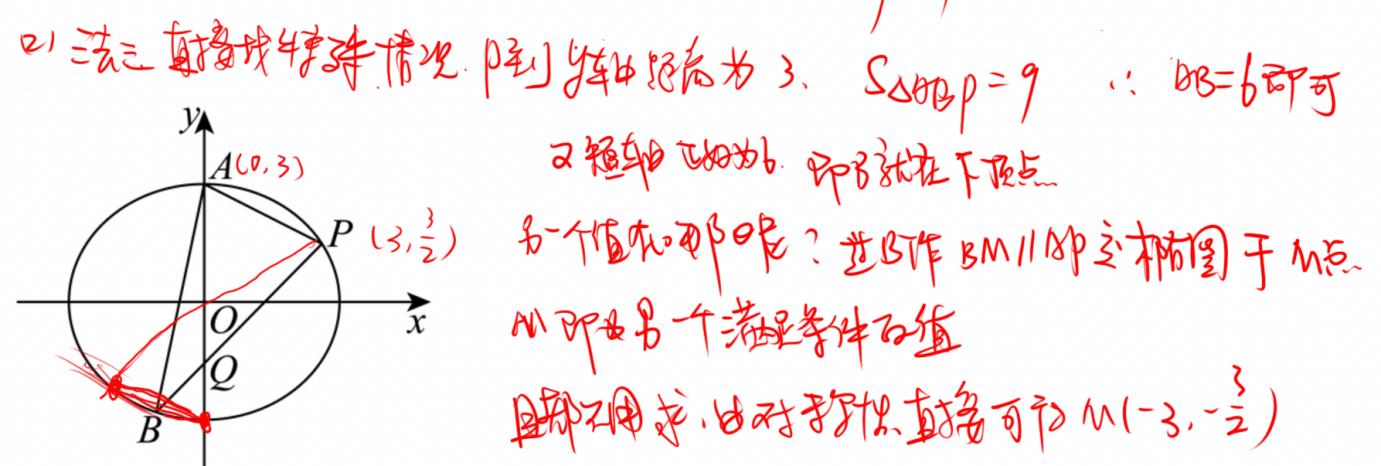 (2) 法三 直接找特殊情况. P到y轴距离为3、 S△ABP=9 ∴ AB=6即可
又短轴正好为6. 即B就在下顶点
另一个值在哪呢？过B作BM//AP交椭圆于M点
M即为另一个满足条件的值
且都不用求，由对称性直接可得M(-3,-3/2)
y
A(0,3)
P (3,3/2)
O
x
Q
B